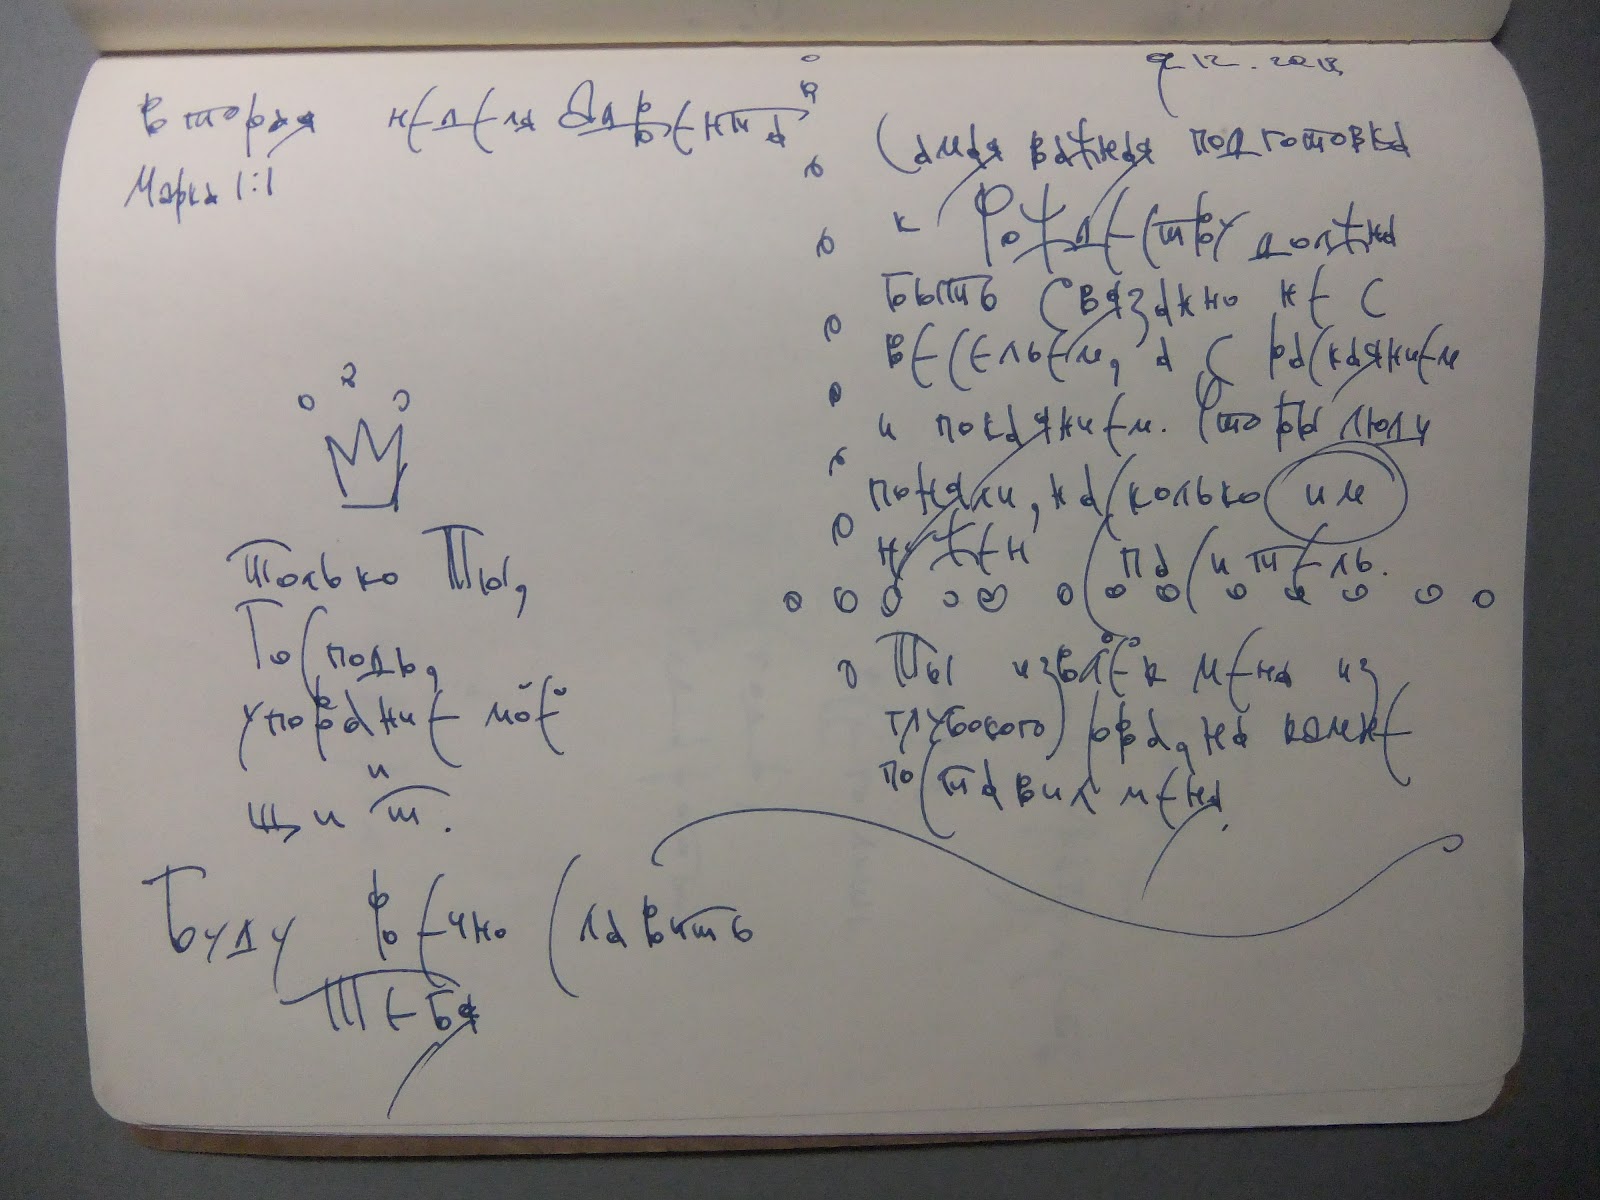 Вторая неделя Адвента
Марка 1:1
Только Ты,
Господь,
упование моё
и
щит.
Буду вечно славить
Тебя
9.12.2018
Самая важная подготовка
к Рождеству должна
быть связано не с
весельем, а с раскаянием
и покаянием. Чтобы люди
поняли, насколько им
нужен Спаситель.
Ты извлёк меня из
глубокого рва, на камне
поставил меня.